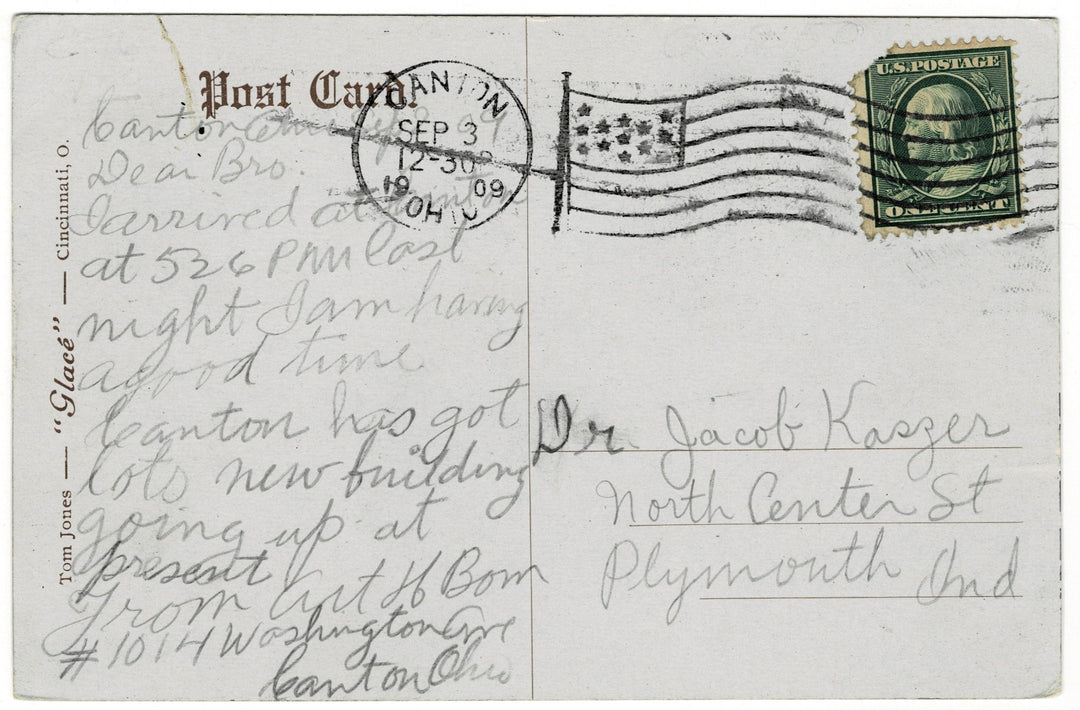 Post Card.
CANTON
SEP 3
12-30P
19 09
OHIO
U.S. POSTAGE
ONE CENT
Canton Ohio Sep 09
Dear Bro.
I arrived at Canton
at 526 PM last
night I am having
a good time
Canton has got
lots new building
going up at
present
From Art H Bom
#1014 Washington Ave
Canton Ohio
Dr Jacob Kaszer
North Center St
Plymouth Ind
Tom Jones — "Glacé" — Cincinnati, O.